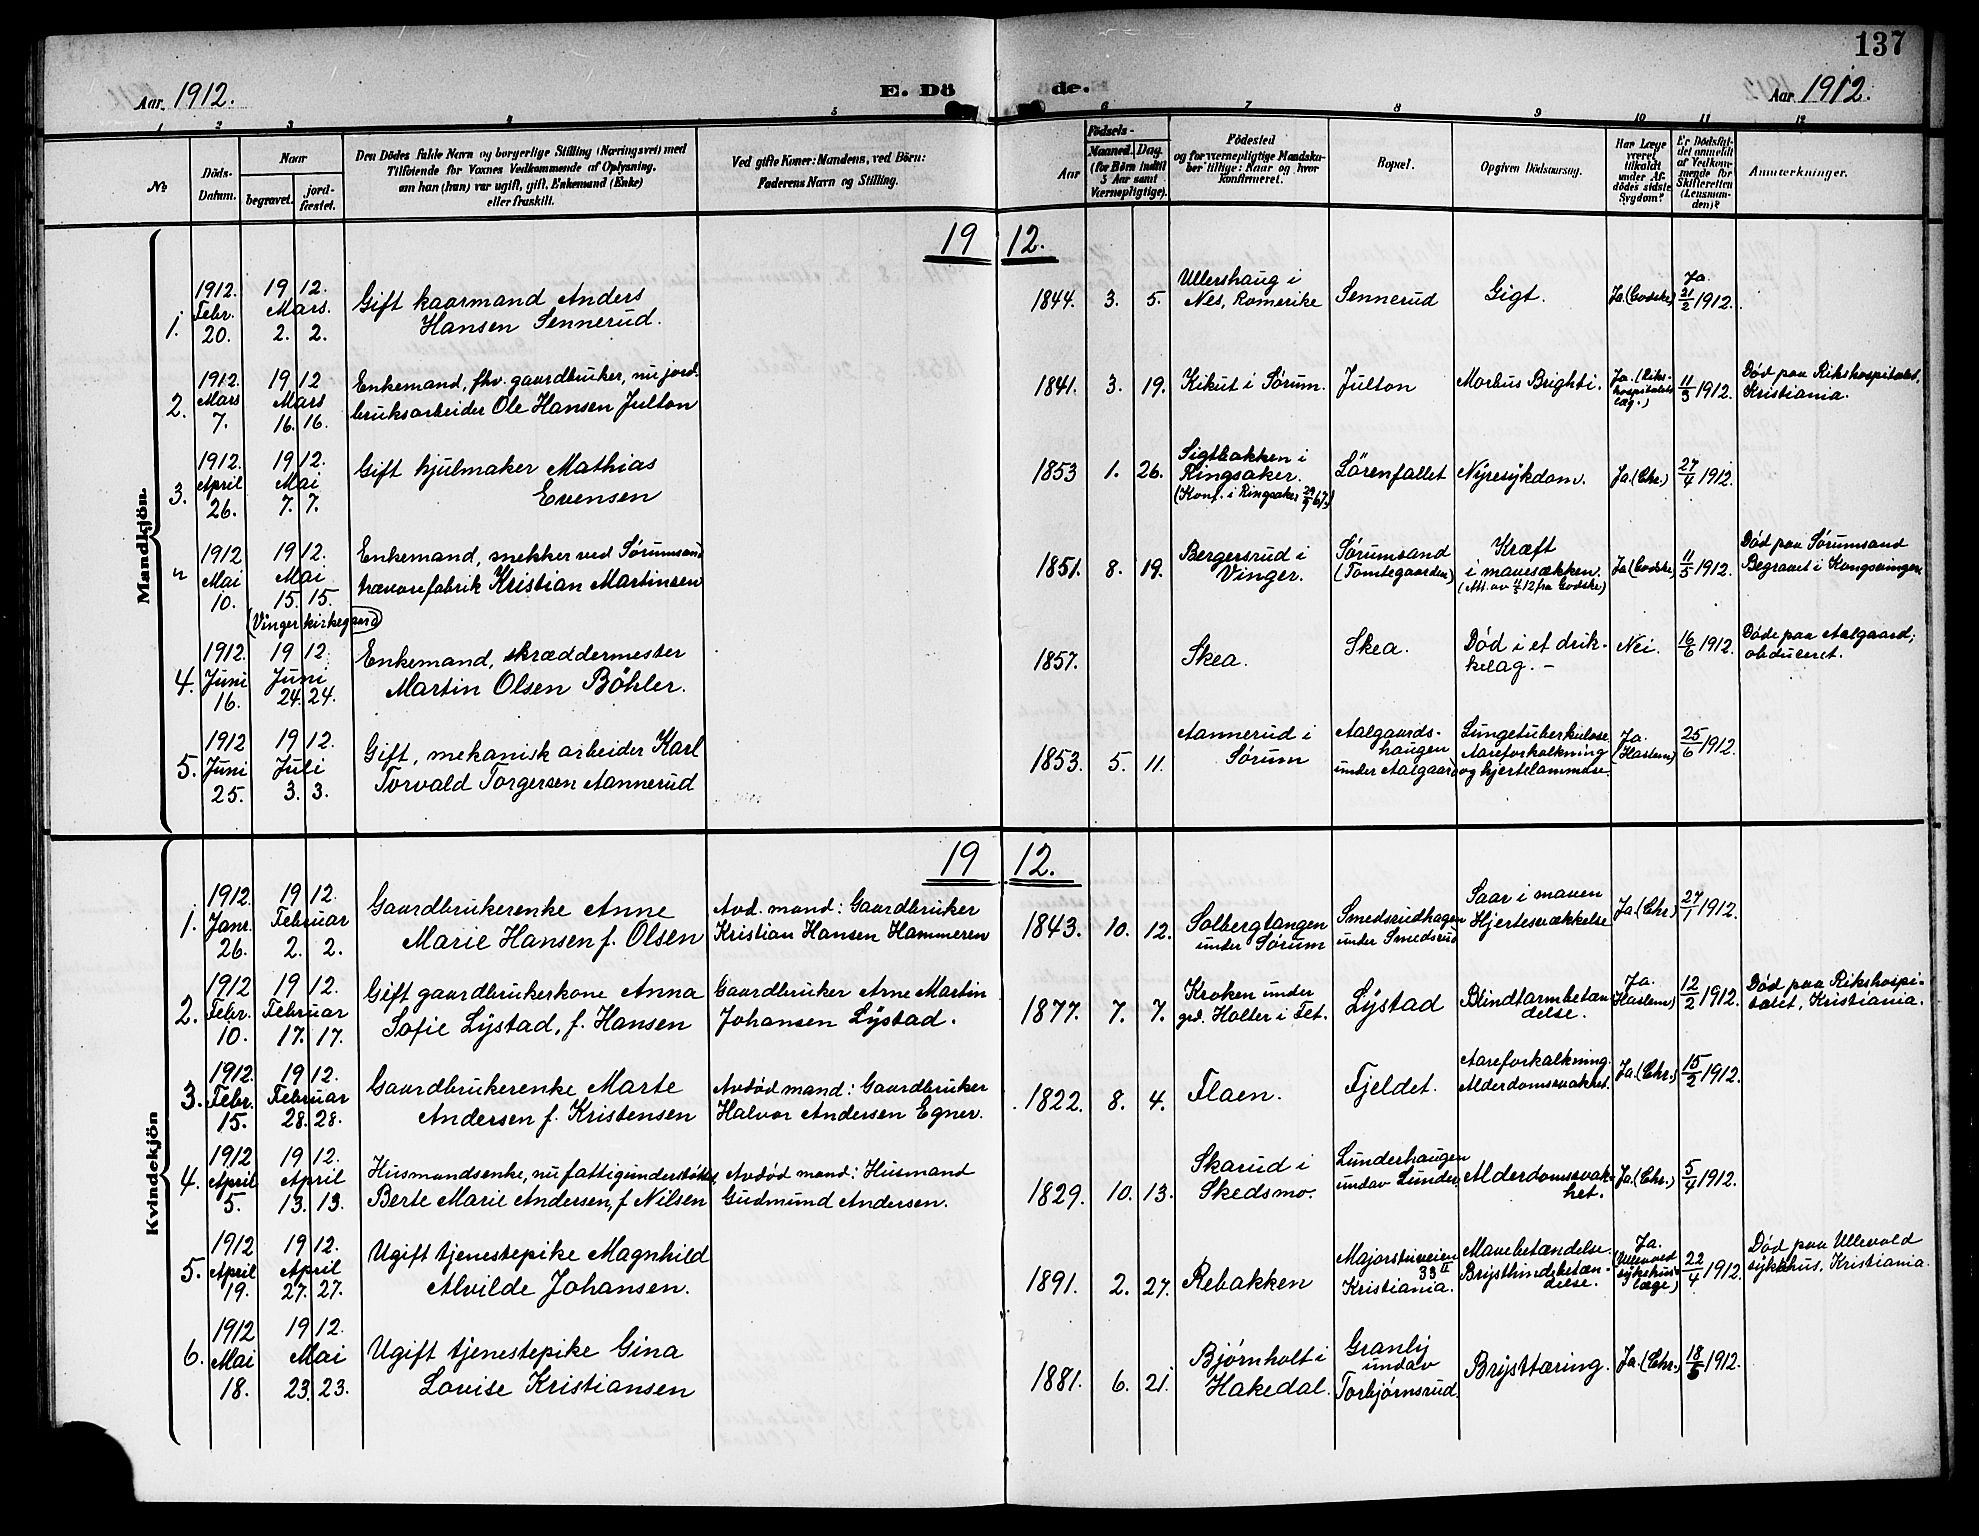 137
Aar 1912.
E. Dö
de.
Aar 1912.
1 2 3 4 5 6 7 8 9 10 11 12
No
Döds-
Datum.
Naar
begravet.
jord-
fæstet.
Den Dödes fulde Navn og borgerlige Stilling (Næringsvei) med
Tilföiende for Voxnes Vedkommende af Oplysning,
om han (hun) var ugift, gift, Enkemand (Enke)
eller fraskilt.
Ved gifte Koner: Mandens, ved Börn:
Faderens Navn og Stilling.
Födsels-
Aar
Maaned.
Dag
(for Börn indtil
5 Aar samt
Værnepligtige).
Födested
og for værnepligtige Mandska-
ber tillige: Naar og hvor
konfirmeret.
Bopæl.
Opgiven Dödsaarsag.
Har Læge
været
tilkaldt
under Af-
dödes sidste
Sygdom?
Er Dödsfal-
det anmeldt
af Vedkom-
mende for
Skifteretten
(Lensman-
den)?
Anmærkninger.
Mandkjön.
19 12.
1.
1912.
Febr.
20.
19 12.
Mars.
2. 2.
Gift kaarmand Anders
Hansen Sennerud.
1844. 3. 5.
Ullershaug i
Nes, Romerike
Sennerud
Gigt.
Ja (Godske)
Ja
21/2 1912.
2.
1912.
Mars
7.
19 12
Mars
16. 16.
Enkemand, fhv. gaardbruker, nu jord-
bruksarbeider Ole Hansen Julton
1841. 3. 19.
Kikut i Sørum.
Julton
Morbus Brighti.
Ja. (Riks-
hospitalets
læg.)
11/3 1912.
Død paa Rikshospitalet,
Kristiania.
3.
1912.
April
26.
19 12.
Mai
7. 7.
Gift hjulmaker Mathias
Evensen
1853 1. 26.
Sigtbakken i
Ringsaker.
(Konf. i Ringsaker 29/9 67.)
Lörenfallet
Nyresykdom.
Ja. (Chr.)
27/4 1912.
"
1912
Mai
10.
19 12.
Mai
15. 15.
(Vinger kirkegaard)
Enkemand, snekker ved Sørumsand
trævarefabrik Kristian Martinsen
1851. 8. 19.
Bergersrud i
Vinger.
Sørumsand
(Tomtegaarden)
Kræft
i mavesækken.
(Att. av 11/5 12 fra Godske)
Ja (Godske)
11/5 1912.
Død paa Sørumsand
Begravet i Kongsvinger.
4.
1912.
Juni
16.
19 12.
Juni
24. 24.
Enkemand, skræddermester
Martin Olsen Böhler.
1857.
Skea.
Skea.
Død i et drik-
kelag. -
Nei.
16/6 1912.
Døde paa Aalgaard;
obduceret.
5.
1912
Juni
25.
19 12.
Juli
3. 3.
Gift, mekanisk arbeider Karl
Torvald Torgersen Aannerud
1853. 5. 11.
Aannerud i
Sørum
Aalgaards-
haugen
under Aalgaard
Lungetuberkulose,
Aareforkalkning
og hjertelammelse.
Ja.
(Haslem)
25/6 1912.
Kvindekjön
19 12.
1.
1912.
Janr.
26.
19 12.
Februar
2. 2.
Gaardbrukerenke Anne
Marie Hansen f. Olsen
Avd. mand: Gaardbruker
Kristian Hansen Hammeren
1843. 10. 12.
Solbergtangen
under Sørum
Smedsrudhagen
under Smedsrud
Saar i maven
Hjertesvækkelse
Ja. (Chr.)
27/1 1912.
2.
1912
Febr.
10.
19 12.
Februar
17. 17.
Gift gaardbrukerkone Anna
Sofie Lystad, f. Hansen
Gaardbruker Arne Martin
Johansen Lystad.
1877. 7. 7.
Kroken under
grd. Holter i Fet.
Lystad
Blindtarmbetæn-
delse.
Ja.
(Haslem)
12/2 1912.
Død paa Rikshospi-
talet, Kristiania.
3.
1912.
Febr.
15.
19 12.
Februar
28. 28.
Gaardbrukerenke Marte
Andersen f. Kristensen
Avdød mand: Gaardbruker
Halvor Andersen Egner.
1822. 8. 4.
Flaen.
Fjeldet.
Aareforkalkning.
Alderdomssvakhet.
Ja. (Chr.)
15/2 1912.
4.
1912
April
5.
19 12.
April
13. 13.
Husmandsenke, nu fattigunderstöttet,
Berte Marie Andersen, f Nilsen
Avdød mand: Husmand
Gudmund Andersen.
1829. 10. 13.
Skarud i
Skedsmo.
Lunderhaugen
undav Lunder
Alderdomssvak-
het.
Ja. (Chr.)
5/4 1912.
5.
1912
April
19.
19 12.
April
27. 27.
Ugift tjenestepike Magnhild
Alvilde Johansen.
1891. 2. 27.
Rebakken
Majorstuveien
33 II
Kristiania.
Mavebetændelse.
Brysthindebetæn-
delse.
Ja.
(Ullevold
sykehus-
læge)
22/4 1912.
Død paa Ullevold
sykehus, Kristiania.
6.
1912
Mai
18.
19 12.
Mai
23. 23.
Ugift tjenestepike Gina
Lovise Kristiansen
1881. 6. 21.
Bjørnholt i
Hakedal.
Granly
undav
Torbjørnsrud.
Brysttæring.
Ja. (Chr.)
18/5 1912.